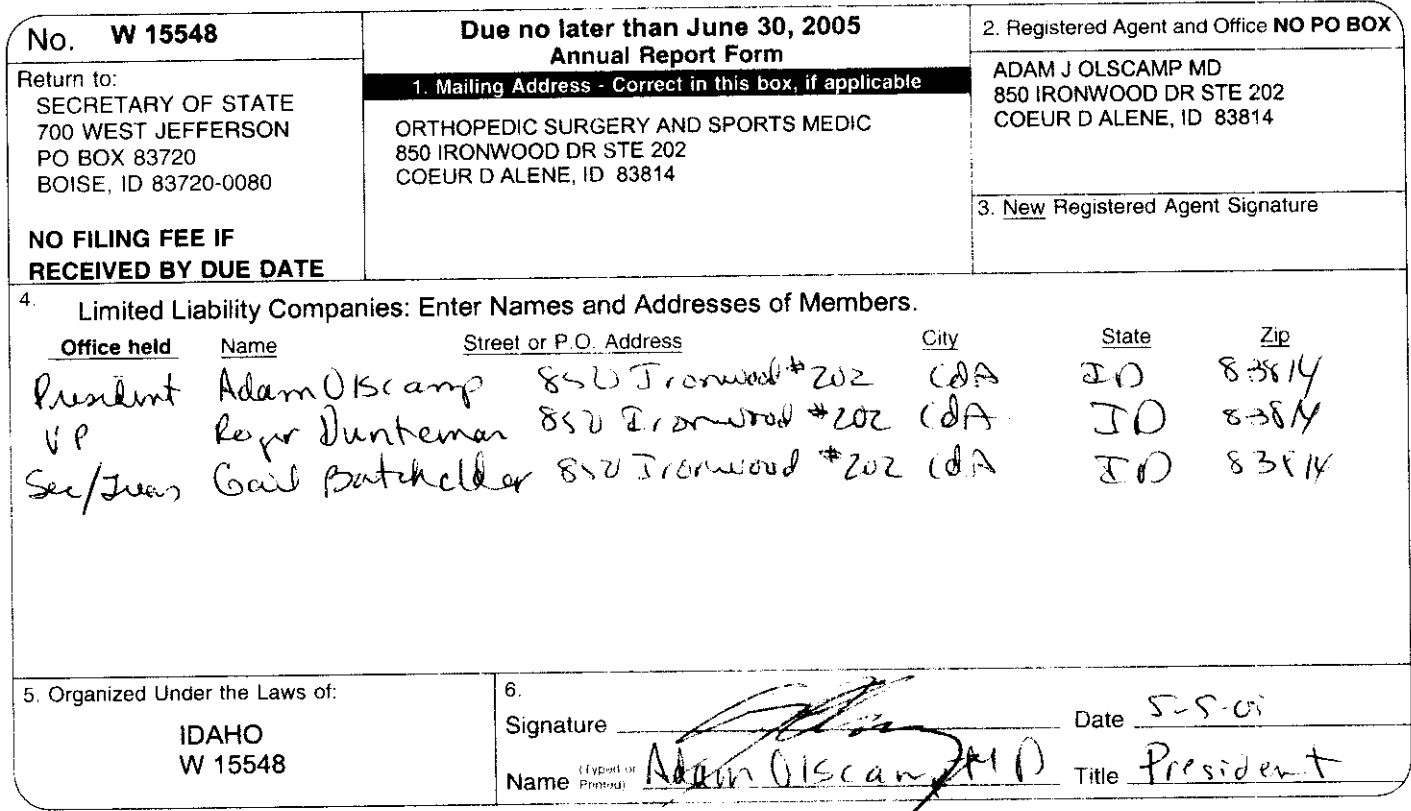 No. W 15548
Return to:
SECRETARY OF STATE
700 WEST JEFFERSON
PO BOX 83720
BOISE, ID 83720-0080
NO FILING FEE IF
RECEIVED BY DUE DATE
Due no later than June 30, 2005
Annual Report Form
1. Mailing Address - Correct in this box, if applicable
ORTHOPEDIC SURGERY AND SPORTS MEDIC
850 IRONWOOD DR STE 202
COEUR D ALENE, ID 83814
2. Registered Agent and Office NO PO BOX
ADAM J OLSCAMP MD
850 IRONWOOD DR STE 202
COEUR D ALENE, ID 83814
3. New Registered Agent Signature
4. Limited Liability Companies: Enter Names and Addresses of Members.
Office held Name Street or P.O. Address City State Zip
President Adam Olscamp 850 Ironwood #202 CdA ID 83814
VP Roger Dunteman 850 Ironwood #202 CdA ID 83814
Sec/Treas Gail Batchelder 850 Ironwood #202 CdA ID 83814
5. Organized Under the Laws of:
IDAHO
W 15548
6.
Signature Date 5-5-05
Name (Typed or Printed) Adam Olscamp MD Title President